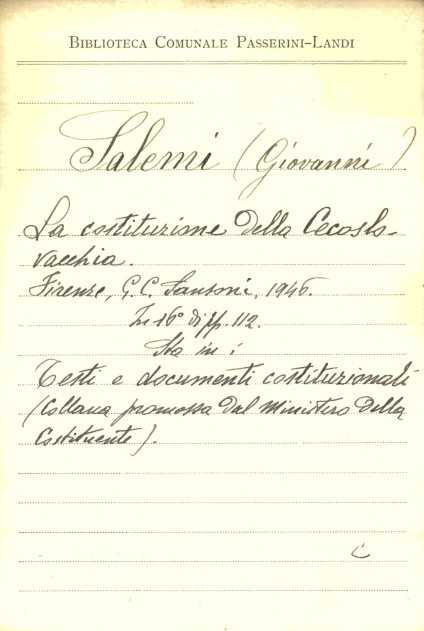 BIBLIOTECA COMUNALE PASSERINI-LANDI
Salemi (Giovanni)
La costituzione della Cecoslo-
vacchia.
Firenze, G. C. Sansoni, 1946.
In 16° di pp. 112.
Sta in:
Testi e documenti costituzionali
(Collana promossa dal Ministero della
Costituente).
C